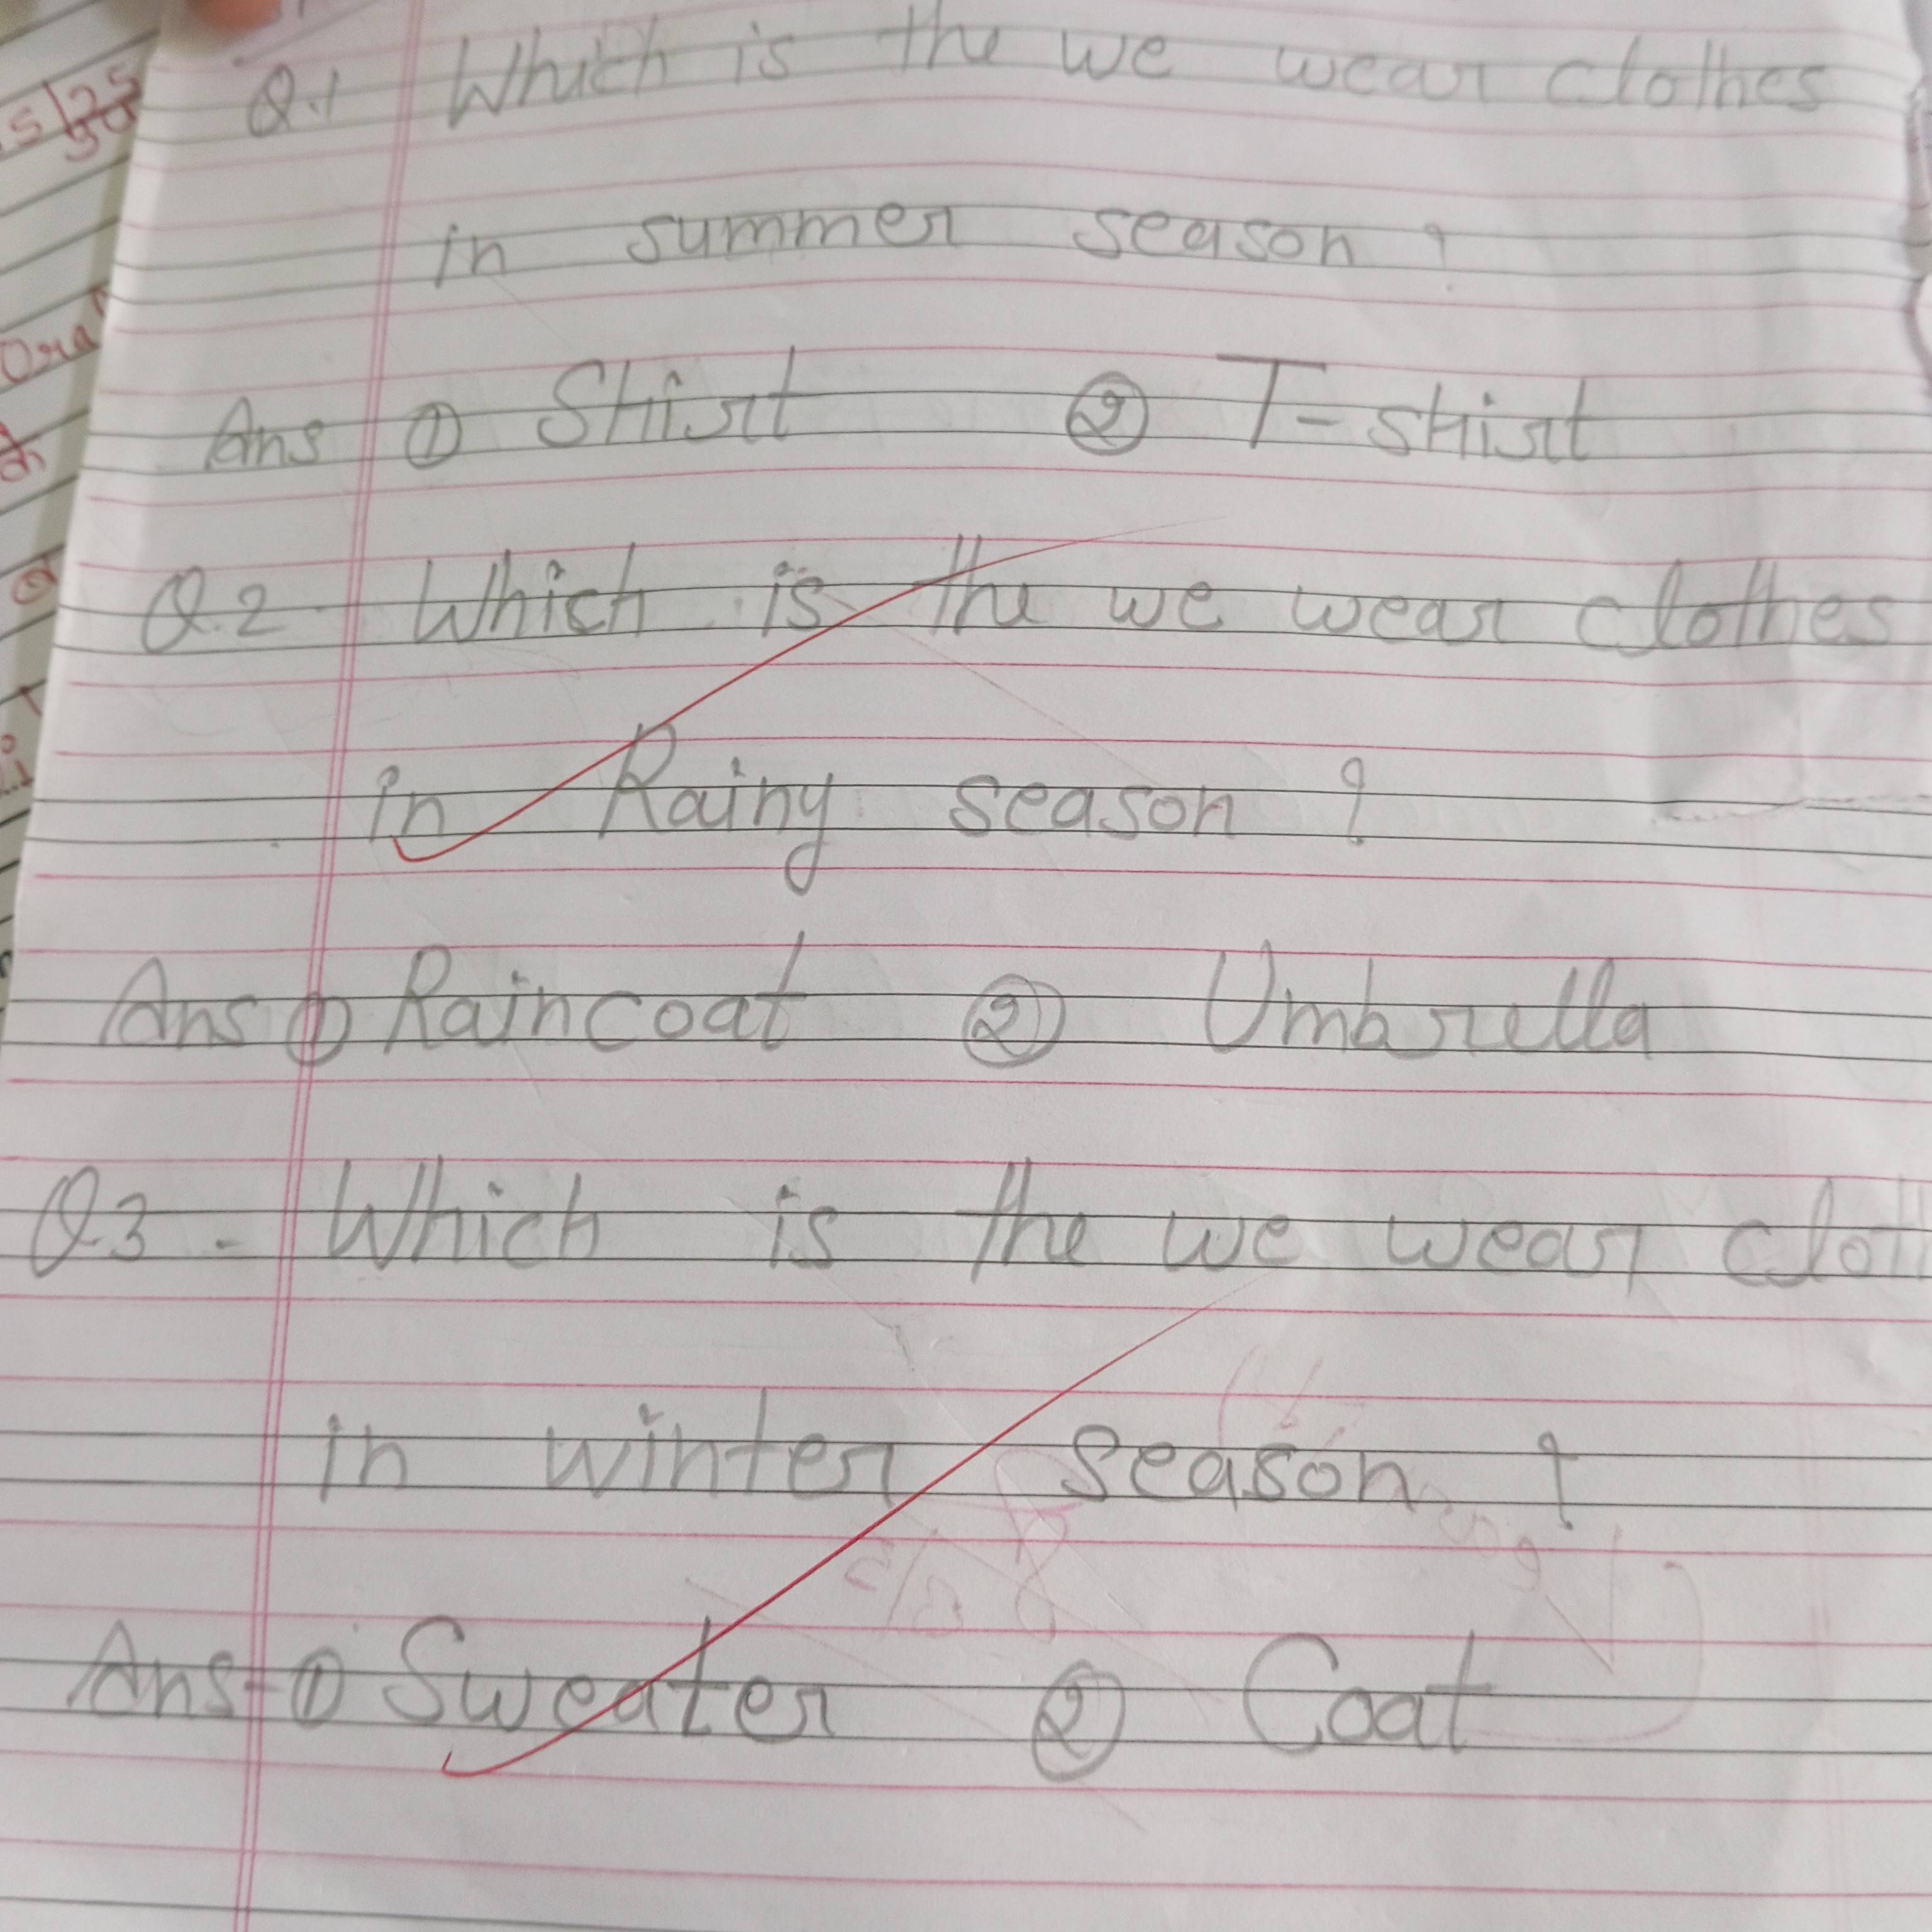 Q.1 Which is the we wear clothes
in summer season ?
Ans ① Shirt ② T-shirt
Q.2 Which is the we wear clothes
in Rainy season ?
Ans ① Raincoat ② Umbrella
Q.3 - Which is the we wear
in winter season ?
Ans - ① Sweater ② Coat